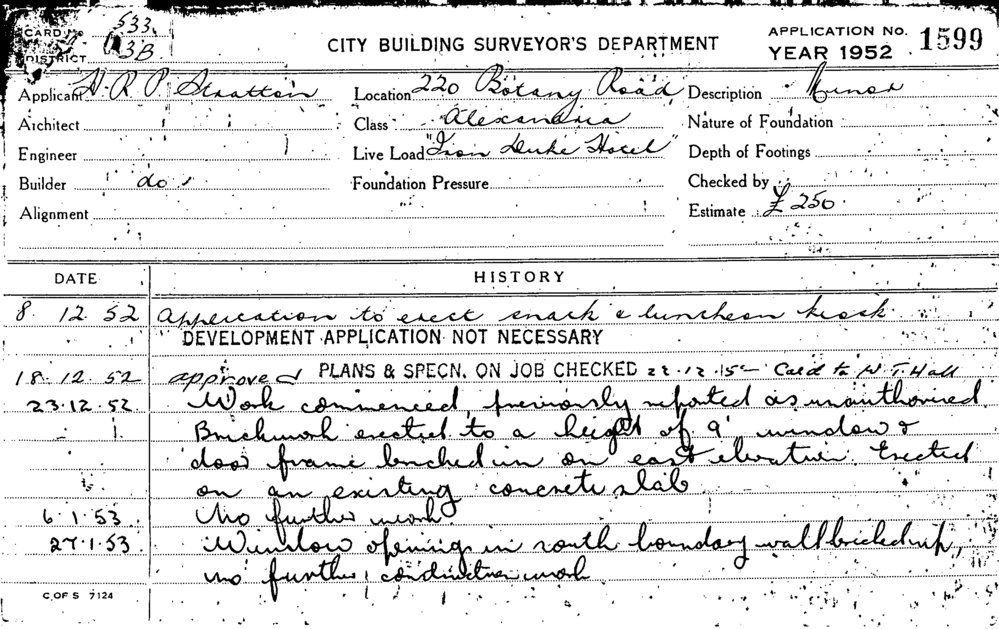 CARD No 533
DISTRICT 3B
CITY BUILDING SURVEYOR'S DEPARTMENT
APPLICATION No. 1599
YEAR 1952
Applicant H. R. P. Stratton
Location 220 Botany Road
Description Minor
Architect
Class Alexandria
Nature of Foundation
Engineer
Live Load "Iron Duke Hotel"
Depth of Footings
Builder do
Foundation Pressure
Checked by
Alignment
Estimate £250
DATE HISTORY
8. 12. 52 Application to erect snack & luncheon kiosk
DEVELOPMENT APPLICATION NOT NECESSARY
18. 12. 52 approved PLANS & SPECN. ON JOB CHECKED 22.12.52 Card to N. T. Hall
23.12.52 Work commenced, previously reported as unauthorised.
Brickwork erected to a height of 9' window &
door frame bricked in on east elevation. Erected
on an existing concrete slab
6.1.53 No further work.
27.1.53 Window opening in south boundary wall bricked up,
no further construction work
C OF S 7124